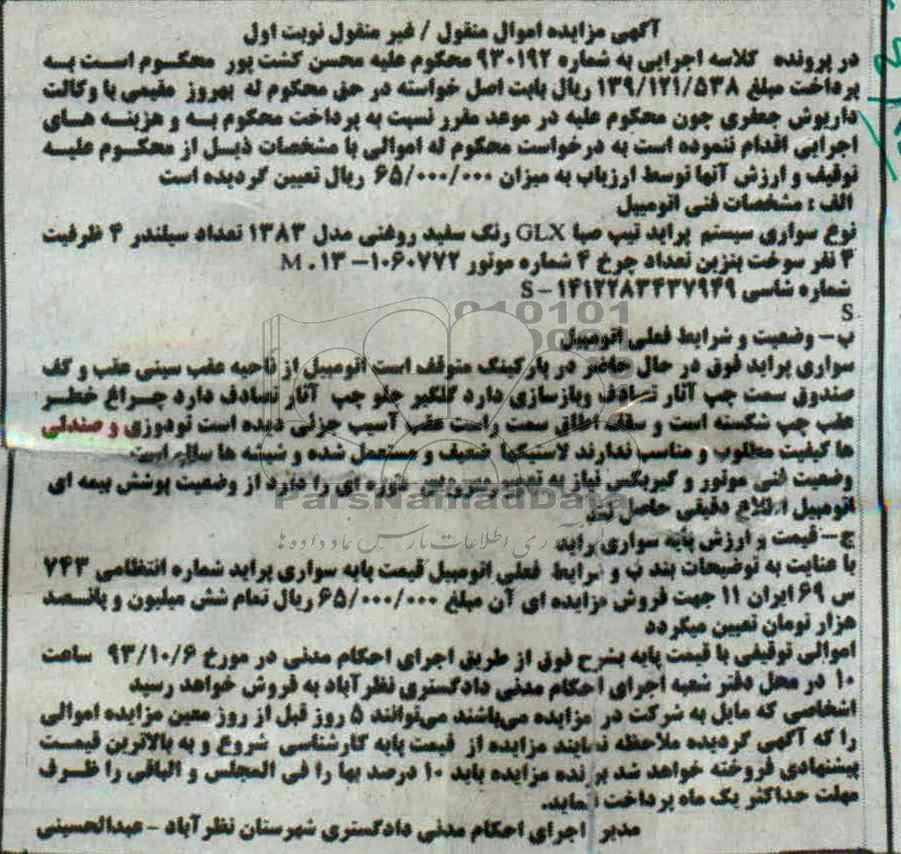 آگهی مزایده اموال منقول / غیر منقول نوبت اول
در پرونده کلاسه اجرایی به شماره ۹۳۰۱۹۲ محکوم علیه محسن کشت پور محکوم است به
پرداخت مبلغ ۱۳۹/۱۲۱/۵۳۸ ریال بابت اصل خواسته در حق محکوم له بهروز مقیمی با وکالت
داریوش جعفری چون محکوم علیه در موعد مقرر نسبت به پرداخت محکوم به و هزینه های
اجرایی اقدام ننموده است به درخواست محکوم له اموالی با مشخصات ذیل از محکوم علیه
توقیف و ارزش آنها توسط ارزیاب به میزان ۶۵/۰۰۰/۰۰۰ ریال تعیین گردیده است
الف : مشخصات فنی اتومبیل
نوع سواری سیستم پراید تیپ صبا GLX رنگ سفید روغنی مدل ۱۳۸۳ تعداد سیلندر ۴ ظرفیت
۴ نفر سوخت بنزین تعداد چرخ ۴ شماره موتور ۱۰۶۰۷۷۲- M.۱۳
شماره شاسی S-۱۴۱۲۲۸۳۴۳۷۹۴۹
S
ب- وضعیت و شرایط فعلی اتومبیل
سواری پراید فوق در حال حاضر در پارکینگ متوقف است اتومبیل از ناحیه عقب سینی عقب و کف
صندوق سمت چپ آثار تصادف وبازسازی دارد گلگیر جلو چپ آثار تصادف دارد چراغ خطر
عقب چپ شکسته است و سقف اطاق سمت راست عقب آسیب جزئی دیده است تودوزی و صندلی
ها کیفیت مطلوب و مناسب ندارند لاستیکها ضعیف و مستعمل شده و شیشه ها سالم است
وضعیت فنی موتور و گیربکس نیاز به تعمیر وسرویس دوره ای را دارد از وضعیت پوشش بیمه ای
اتومبیل اطلاع دقیقی حاصل نشد
ج- قیمت و ارزش پایه سواری پراید
با عنایت به توضیحات بند ب و شرایط فعلی اتومبیل قیمت پایه سواری پراید شماره انتظامی ۷۴۳
س ۶۹ ایران ۱۱ جهت فروش مزایده ای آن مبلغ ۶۵/۰۰۰/۰۰۰ ریال تمام شش میلیون و پانصد
هزار تومان تعیین میگردد
اموالی توقیفی با قیمت پایه بشرح فوق از طریق اجرای احکام مدنی در مورخ ۹۳/۱۰/۶ ساعت
۱۰ در محل دفتر شعبه اجرای احکام مدنی دادگستری نظرآباد به فروش خواهد رسید
اشخاصی که مایل به شرکت در مزایده می‌باشند می‌توانند ۵ روز قبل از روز معین مزایده اموالی
را که آگهی گردیده ملاحظه نمایند مزایده از قیمت پایه کارشناسی شروع و به بالاترین قیمت
پیشنهادی فروخته خواهد شد برنده مزایده باید ۱۰ درصد بها را فی المجلس و الباقی را ظرف
مهلت حداکثر یک ماه پرداخت نماید.
مدیر اجرای احکام مدنی دادگستری شهرستان نظرآباد - عبدالحسینی
ParsNamadData